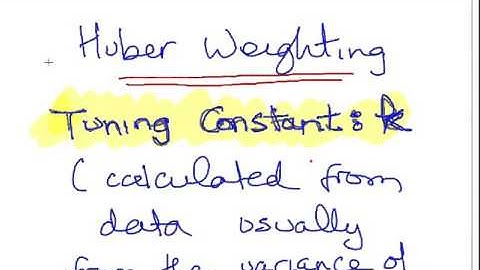 Huber Weighting
Tuning Constant: k
(calculated from
data usually
from the variance of